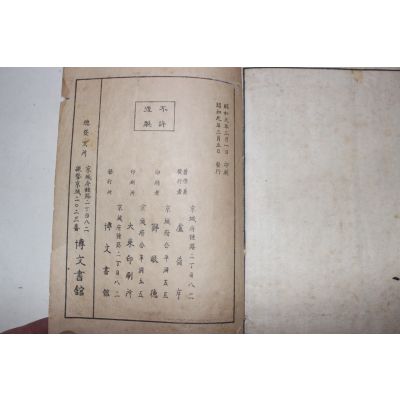 昭和九年三月一日 印刷
昭和九年三月五日 發行
不許
複製
京城府鍾路二丁目八二
著作兼
發行者
盧益亨
京城府公平洞五五
印刷者
鄭敬德
京城府公平洞五五
印刷所
大東印刷所
京城府鍾路二丁目八二
發行所
博文書館
總發賣所
京城府鍾路二丁目八二
振替京城二〇二三番
博文書館